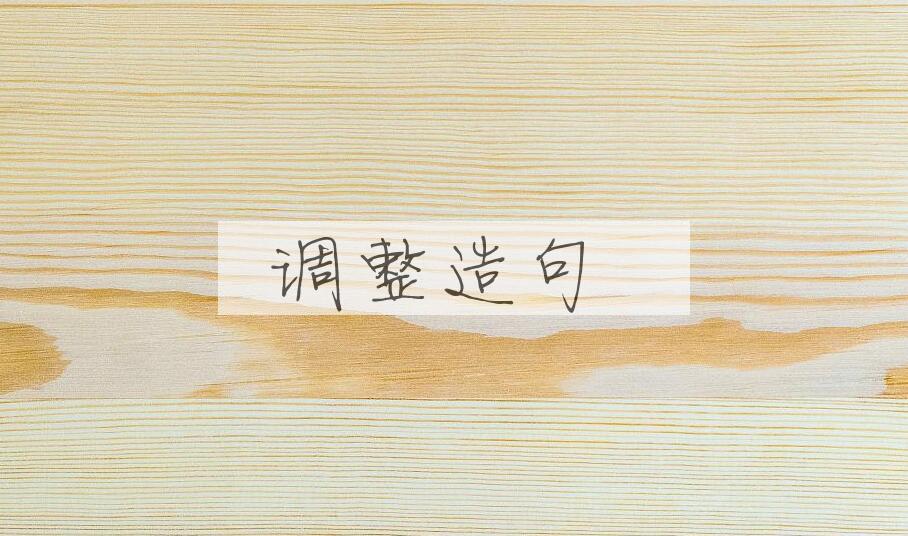 调整造句